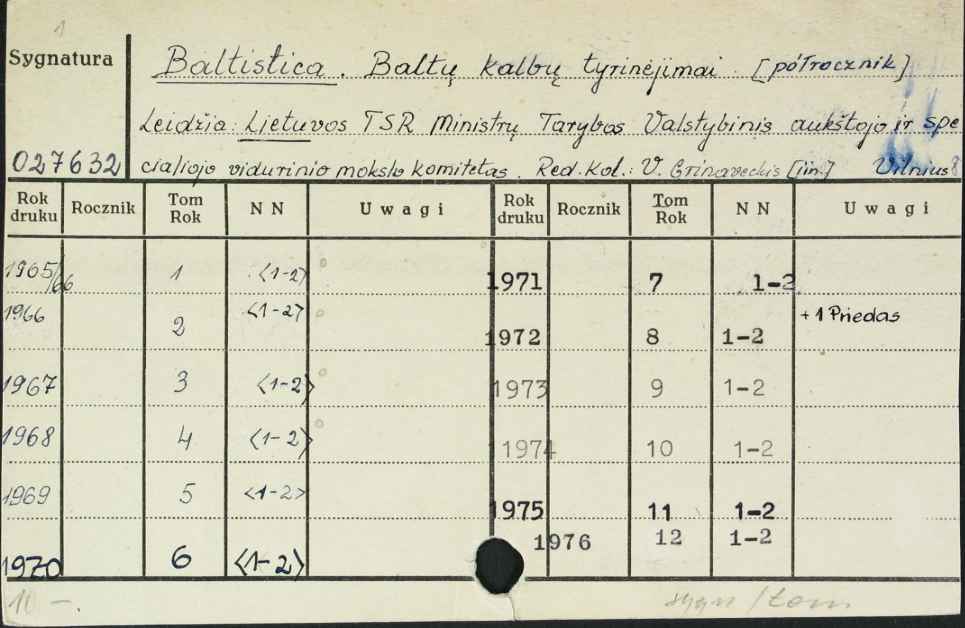 1
Sygnatura
Baltistica. Baltų kalbų tyrinėjimai. [półrocznik]
Leidžia: Lietuvos TSR Ministrų Tarybos Valstybinis aukštojo ir spe
027632 cialiojo vidurinio mokslo komitetas. Red. kol.: V. Grinaveckis [i in.] Vilnius
Rok druku Rocznik Tom Rok NN Uwagi Rok druku Rocznik Tom Rok NN Uwagi
1965/66 1 <1-2> 1971 7 1-2
1966 2 <1-2> 1972 8 1-2 +1 Priedas
1967 3 <1-2> 1973 9 1-2
1968 4 <1-2> 1974 10 1-2
1969 5 <1-2> 1975 11 1-2
1970 6 <1-2> 1976 12 1-2
10 -. sygn/tom